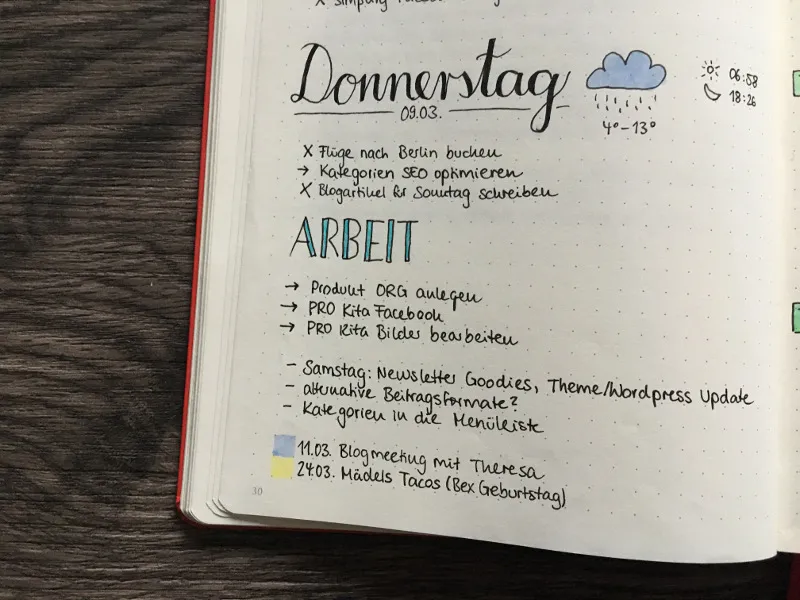 Donnerstag
09.03.
06:58
18:26
4°-13°
X Flüge nach Berlin buchen
→ Kategorien SEO optimieren
X Blogartikel für Sonntag schreiben
ARBEIT
→ Produkt ORG anlegen
→ PRO Kita Facebook
→ PRO Kita Bilder bearbeiten
- Samstag: Newsletter Goodies, Theme/Wordpress Update
- alternative Beitragsformate?
- Kategorien in die Menüleiste
11.03. Blogmeeting mit Theresa
24.03. Mädels Tacos (Bex Geburtstag)
30